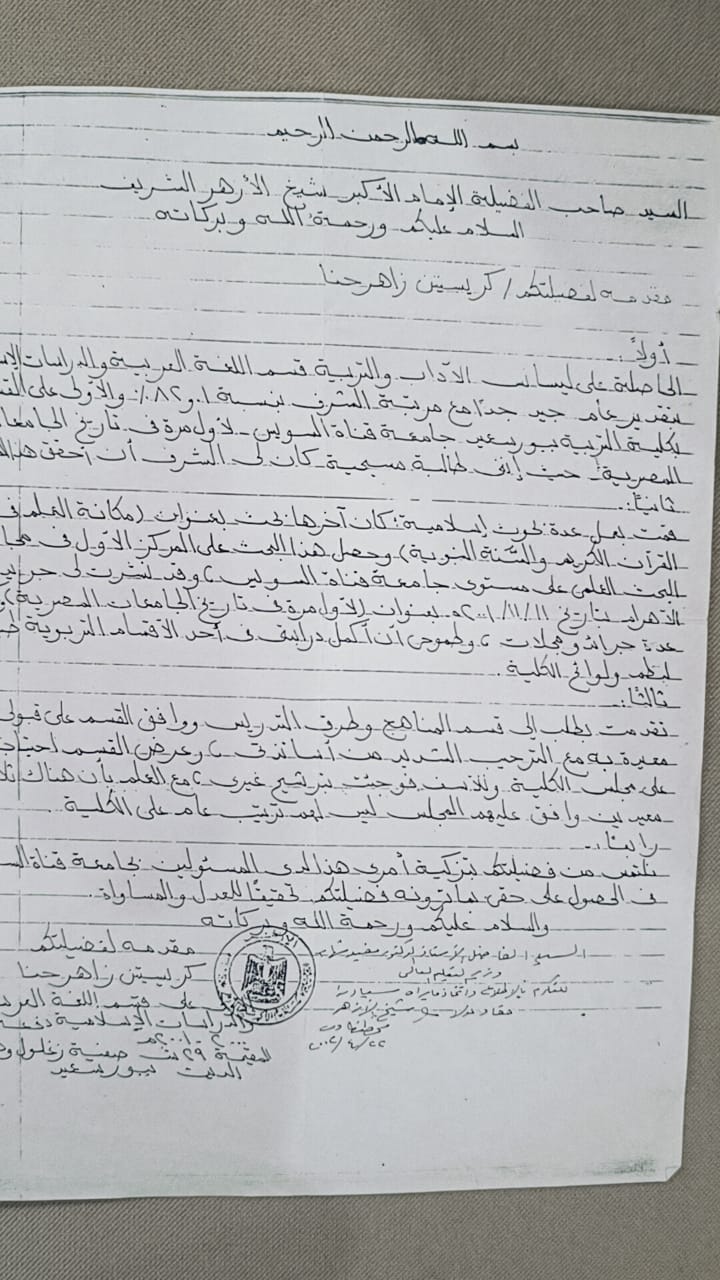 بسم الله الرحمن الرحيم
السيد صاحب الفضيلة الإمام الأكبر شيخ الأزهر الشريف
السلام عليكم ورحمة الله وبركاته
مقدمه لفضيلتكم / كريستين زاهر حنا
أولاً:
الحاصلة على ليسانس الآداب والتربية قسم اللغة العربية والدراسات
بتقدير عام جيد جداً مع مرتبة الشرف بنسبة ٨٢,١٪ والأولى على
بكلية التربية ببورسعيد جامعة قناة السويس - لأول مرة في تاريخ
المصرية؛ حيث إننى طالبة مسيحية كان لى الشرف أن أحقق
ثانياً:.
قمت بعمل عدة بحوث إسلامية؛ كان آخرها بحث بعنوان (مكانة العلم فى
القرآن الكريم والسنة النبوية) وحصل هذا البحث على المركز الأول فى
البحث العلمى على مستوى جامعة قناة السويس، وقد نشرت لى
الأهرام بتاريخ ٢٠٠١/١١/١١م بعنوان (لأول مرة فى تاريخ الجامعات المصرية)
عدة جرائد ومجلات، وطموحى أن أكمل دراستى فى أحد الأقسام التربوية
لنظم ولوائح الكلية.
ثالثاً:.
تقدمت بطلب إلى قسم المناهج وطرق التدريس ووافق القسم على قبولى
معيدة به مع الترحيب الشديد من أساتذتى، وعرض القسم
على مجلس الكلية وللأسف فوجئت بترشيح غيرى، مع العلم بأن هناك
معيدين وافق عليهم المجلس ليس لهم ترتيب عام على الكلية.
رابعاً:.
نلتمس من فضيلتكم تزكية أمرى هذا لدى المسئولين بجامعة قناة
فى الحصول على حقى بما ترونه فضيلتكم تحقيقاً للعدل والمساواة.
والسلام عليكم ورحمة الله وبركاته
مقدمه لفضيلتكم
كريستين زاهر حنا
على قسم اللغة
والدراسات الإسلامية دفعة
٢٠٠٠ - ٢٠٠١م
المقيمة ٢٩ ش صفية زغلول
ببورسعيد
السيد الفاضل الأستاذ الدكتور مفيد شهاب
وزير التعليم العالى
شيخ الأزهر
٢٠٠٢/٤/٢٢